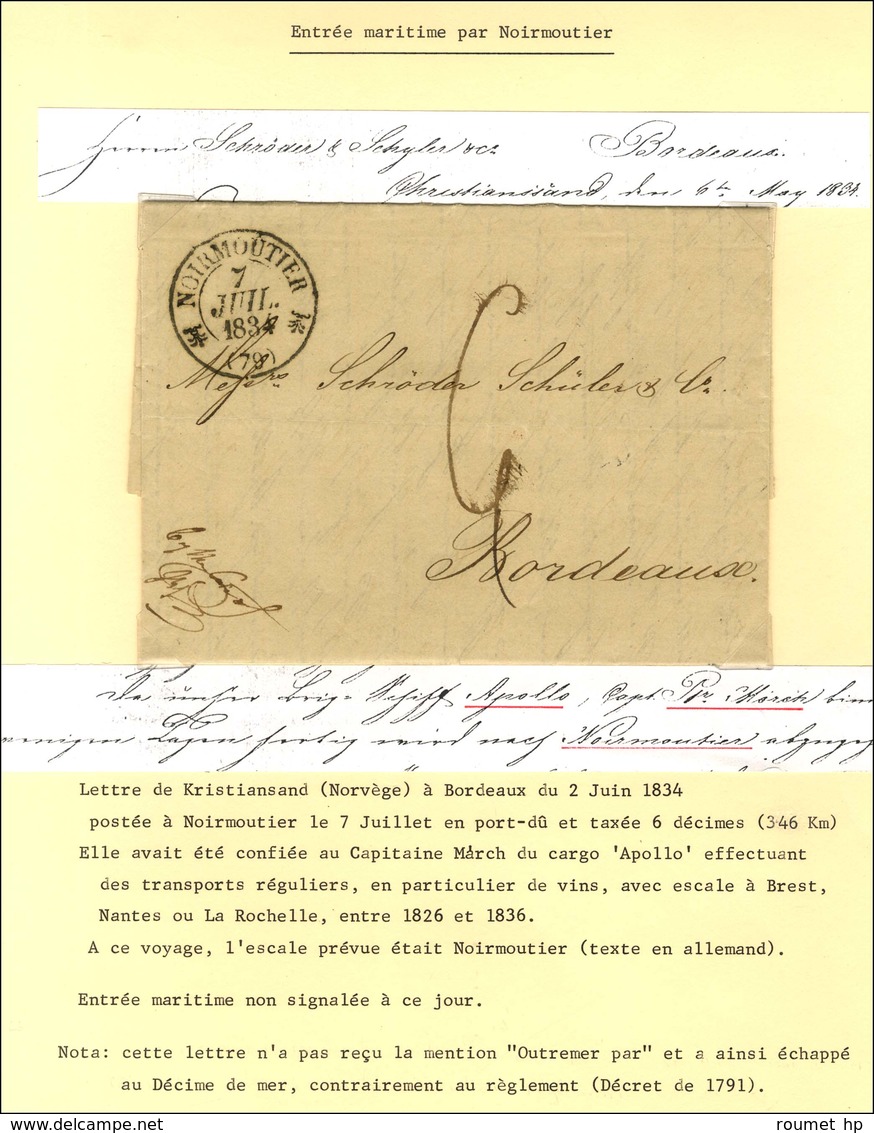 Entrée maritime par Noirmoutier
Herren Schröder & Schyler & Co Bordeaux.
Christianssand, den 6ten May 1834.
NOIRMOUTIER
7
JUIL.
1834
(79)
6
Messrs Schröder Schüler & Co
Bordeaux.
Da unser Brig-Schiff Apollo, Capt.
wenigen Tagen fertig wird nach Noirmoutier
Lettre de Kristiansand (Norvège) à Bordeaux du 2 Juin 1834
postée à Noirmoutier le 7 Juillet en port-dû et taxée 6 décimes (346 Km)
Elle avait été confiée au Capitaine March du cargo 'Apollo' effectuant
des transports réguliers, en particulier de vins, avec escale à Brest,
Nantes ou La Rochelle, entre 1826 et 1836.
A ce voyage, l'escale prévue était Noirmoutier (texte en allemand).
Entrée maritime non signalée à ce jour.
Nota: cette lettre n'a pas reçu la mention "Outremer par" et a ainsi échappé
au Décime de mer, contrairement au règlement (Décret de 1791).
roumet hp